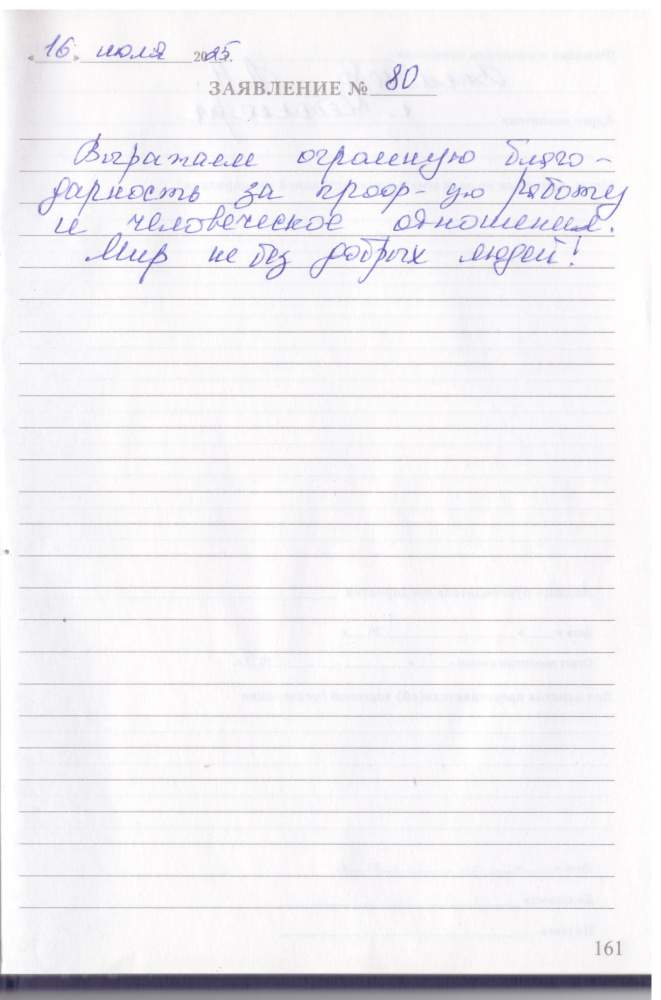 «16» июля 2025г.
ЗАЯВЛЕНИЕ № 80
Выражаем огромную благо-
дарность за проф-ую работу
и человеческое отношения.
Мир не без добрых людей!
161